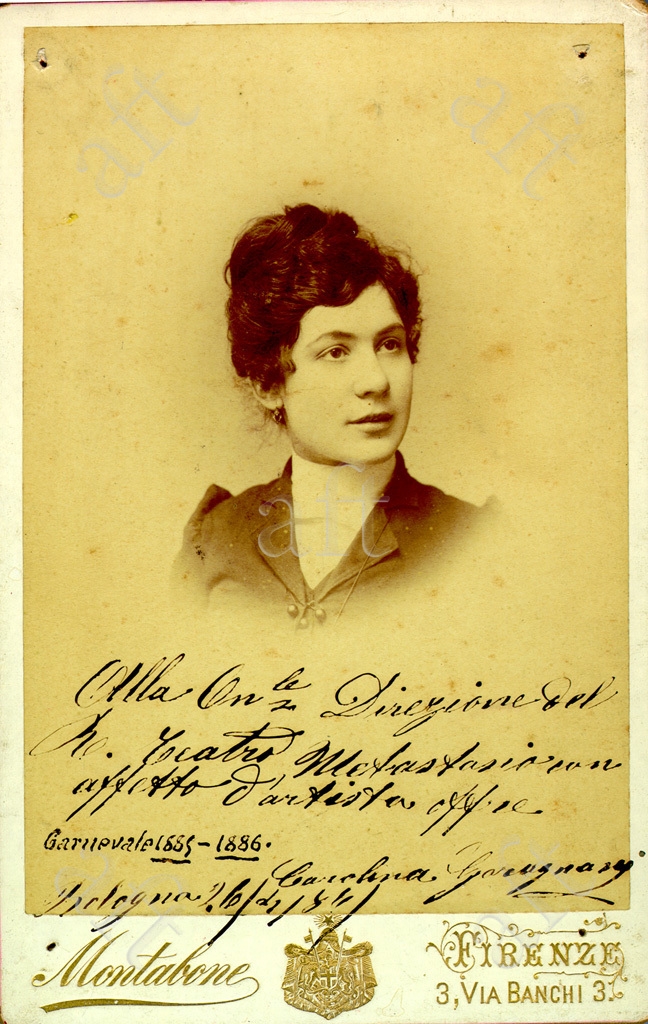 aft
aft
aft
Alla On.le Direzione del
R. Teatro Metastasio con
affetto d'artista offre
Carnevale 1885-1886.
Carolina
Bologna
Montabone
FIRENZE
3, VIA BANCHI 3.